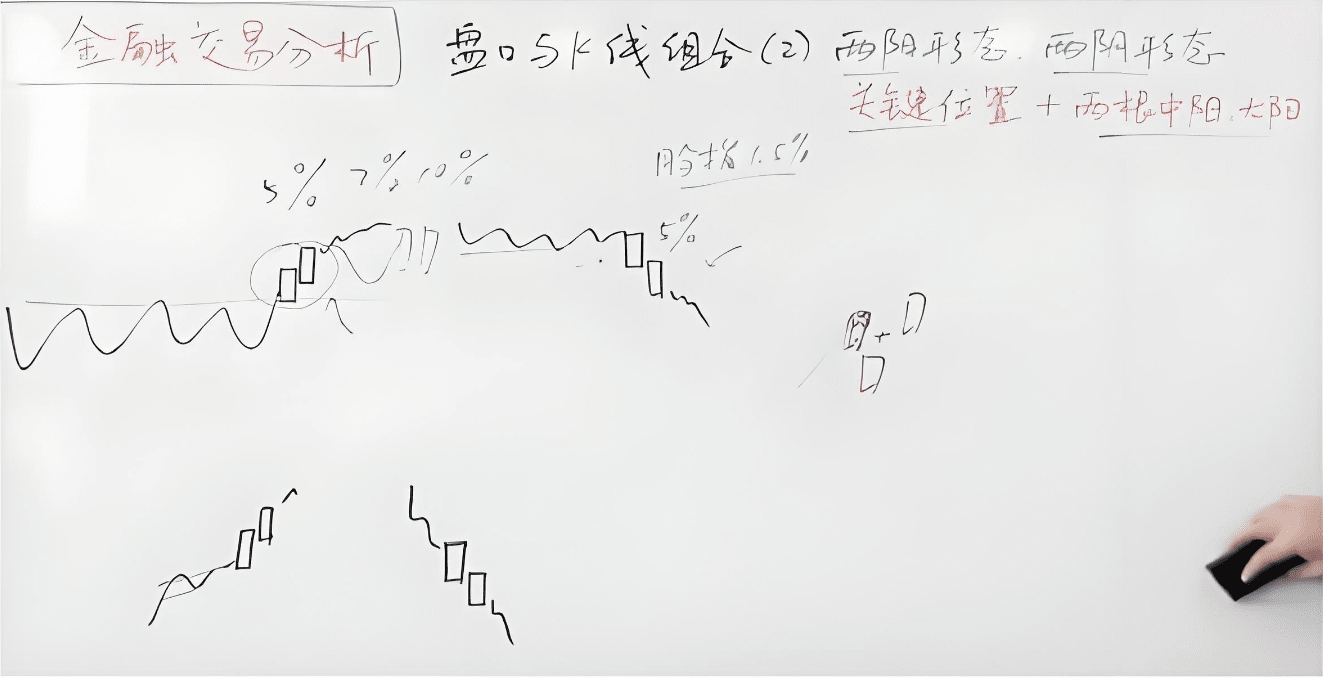 金融交易分析
盘口与K线组合(2) 两阳形态.两阴形态
关键位置+两根中阳.大阳
5% 7% 10%
股指1.5%
5%